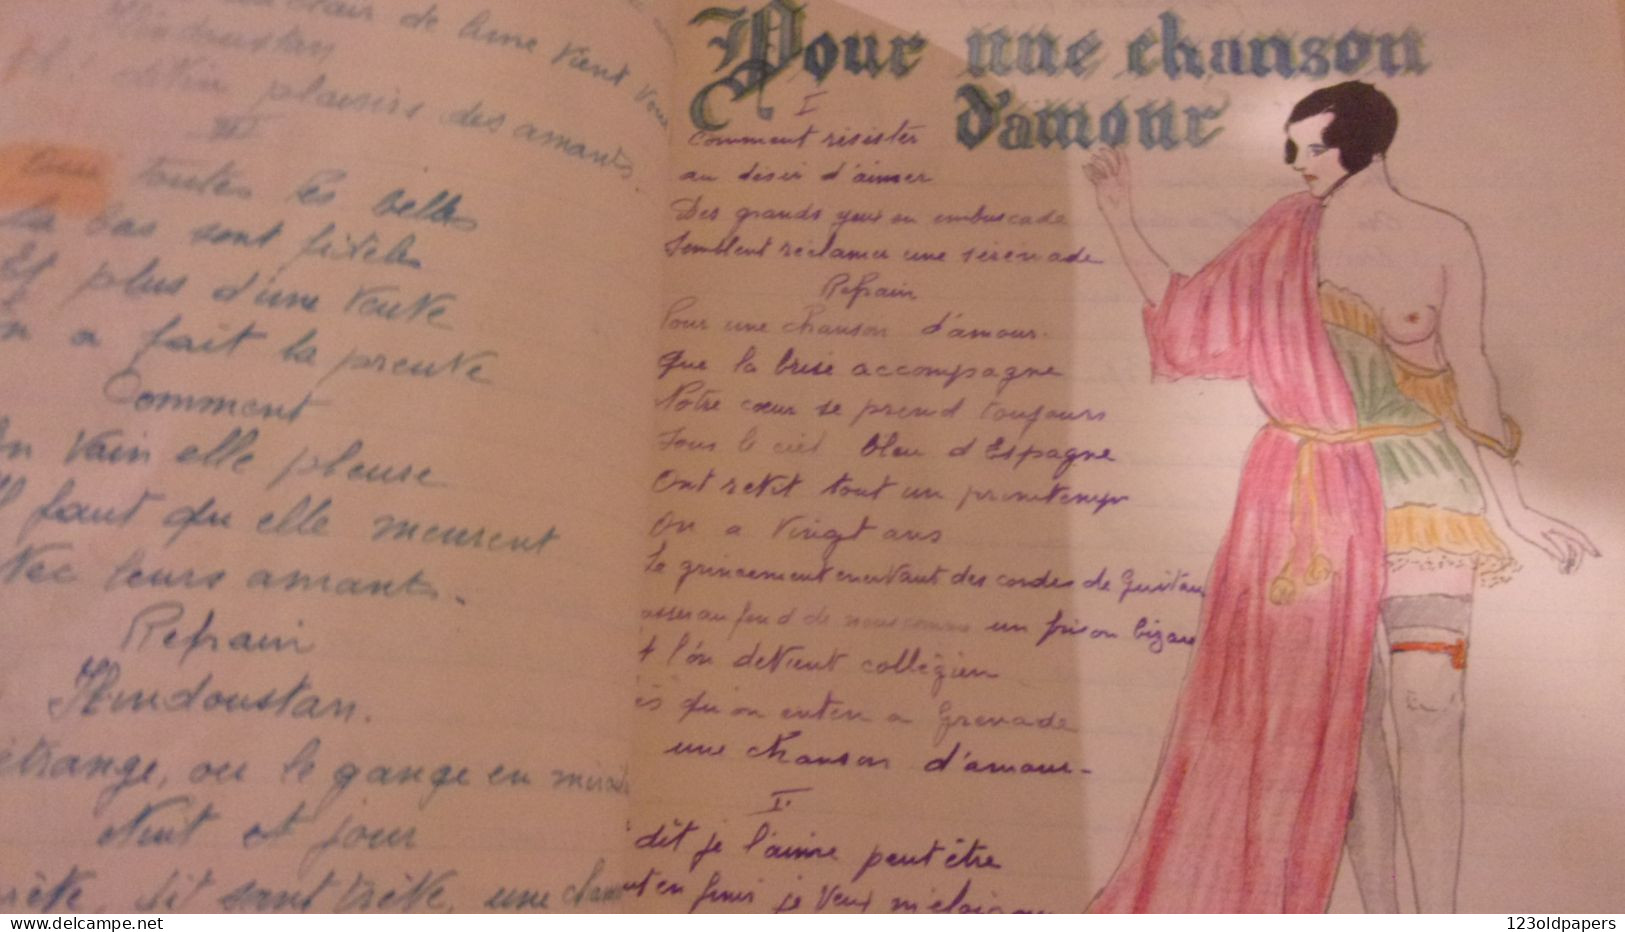 clair de lune vient vous
Hindoustan
divin plaisirs des amants
III
toutes les belles
la bas sont fidèles
Et plus d'une veuve
n a fait la preuve
Comment
En vain elle pleure
Il faut qu elle meurent
vec leurs amants.
Refrain
Hindoustan.
étrange, ou le gange en
Nuit et jour
une
Pour une chanson
d'amour
I
Comment résister
au désir d'aimer
Des grands yeux en embuscade
Semblent réclamer une sérénade
Refrain
Pour une chanson d'amour.
Que la brise accompagne
Notre cœur se prend toujours
Sous le ciel bleu d'Espagne
On revit tout un printemps
On a vingt ans
Le grincement enervant des cordes de Guitare
au fond de nous comme un frison bizare
t l'on devient collégien
ès qu'on enten a Grenade
une chanson d'amour.
II
dit je l'aime peut être
en finir je veux
123oldpapers